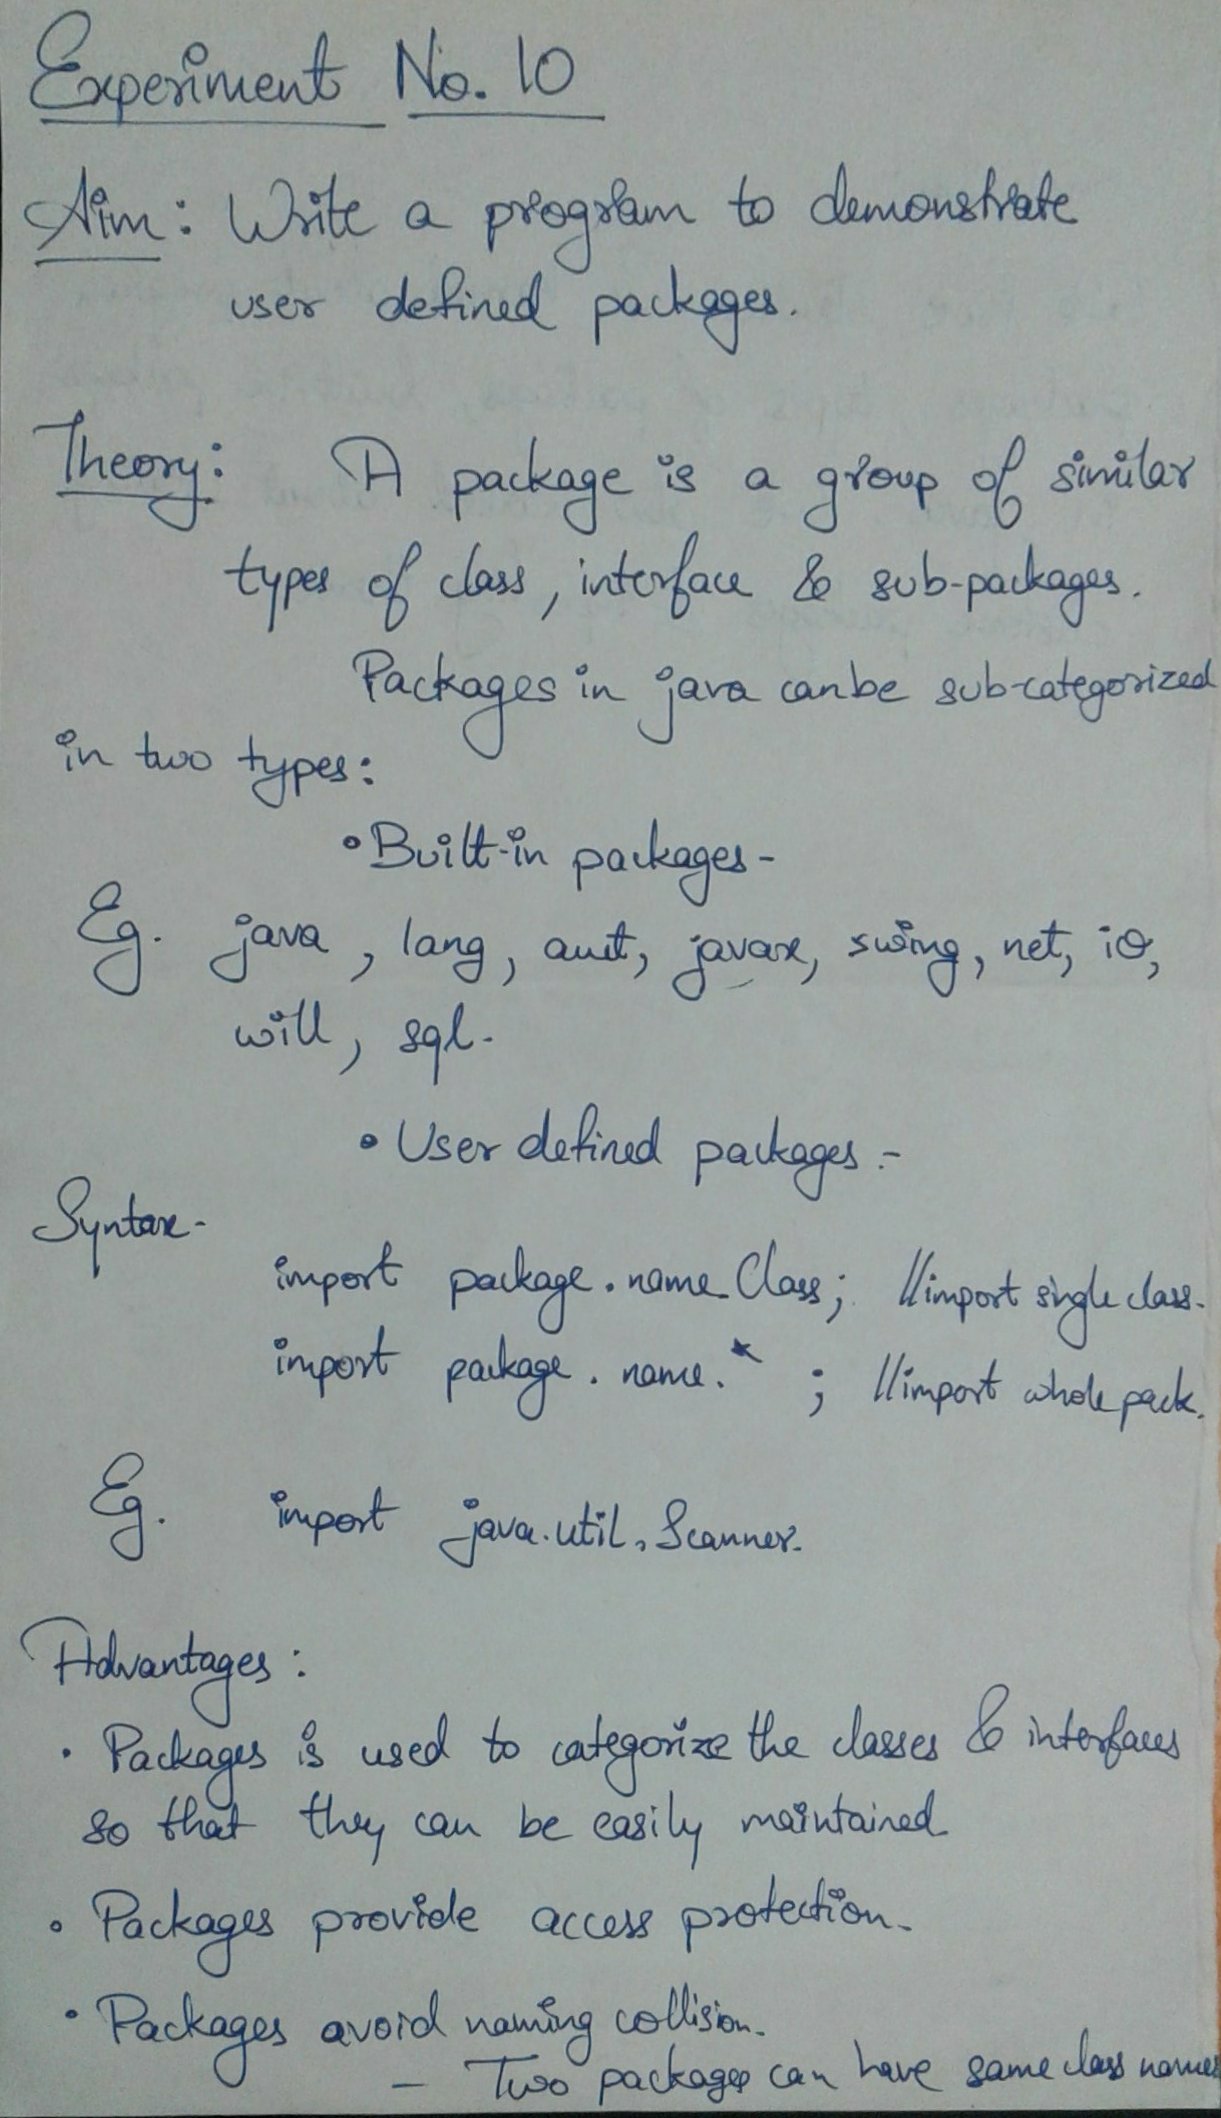 Experiment No. 10
Aim: Write a program to demonstrate
user defined packages.
Theory: A package is a group of similar
types of class, interface & sub-packages.
Packages in java canbe sub-categorized
in two types:
• Built-in packages -
Eg. java, lang, awt, javax, swing, net, io,
will, sql.
• User defined packages :-
Syntax-
import package.name.Class; //import single class.
import package.name.* ; //import whole pack.
Eg. import java.util.Scanner.
Advantages:
• Packages is used to categorize the classes & interfaces
so that they can be easily maintained
• Packages provide access protection.
• Packages avoid naming collision.
- Two packages can have same class names